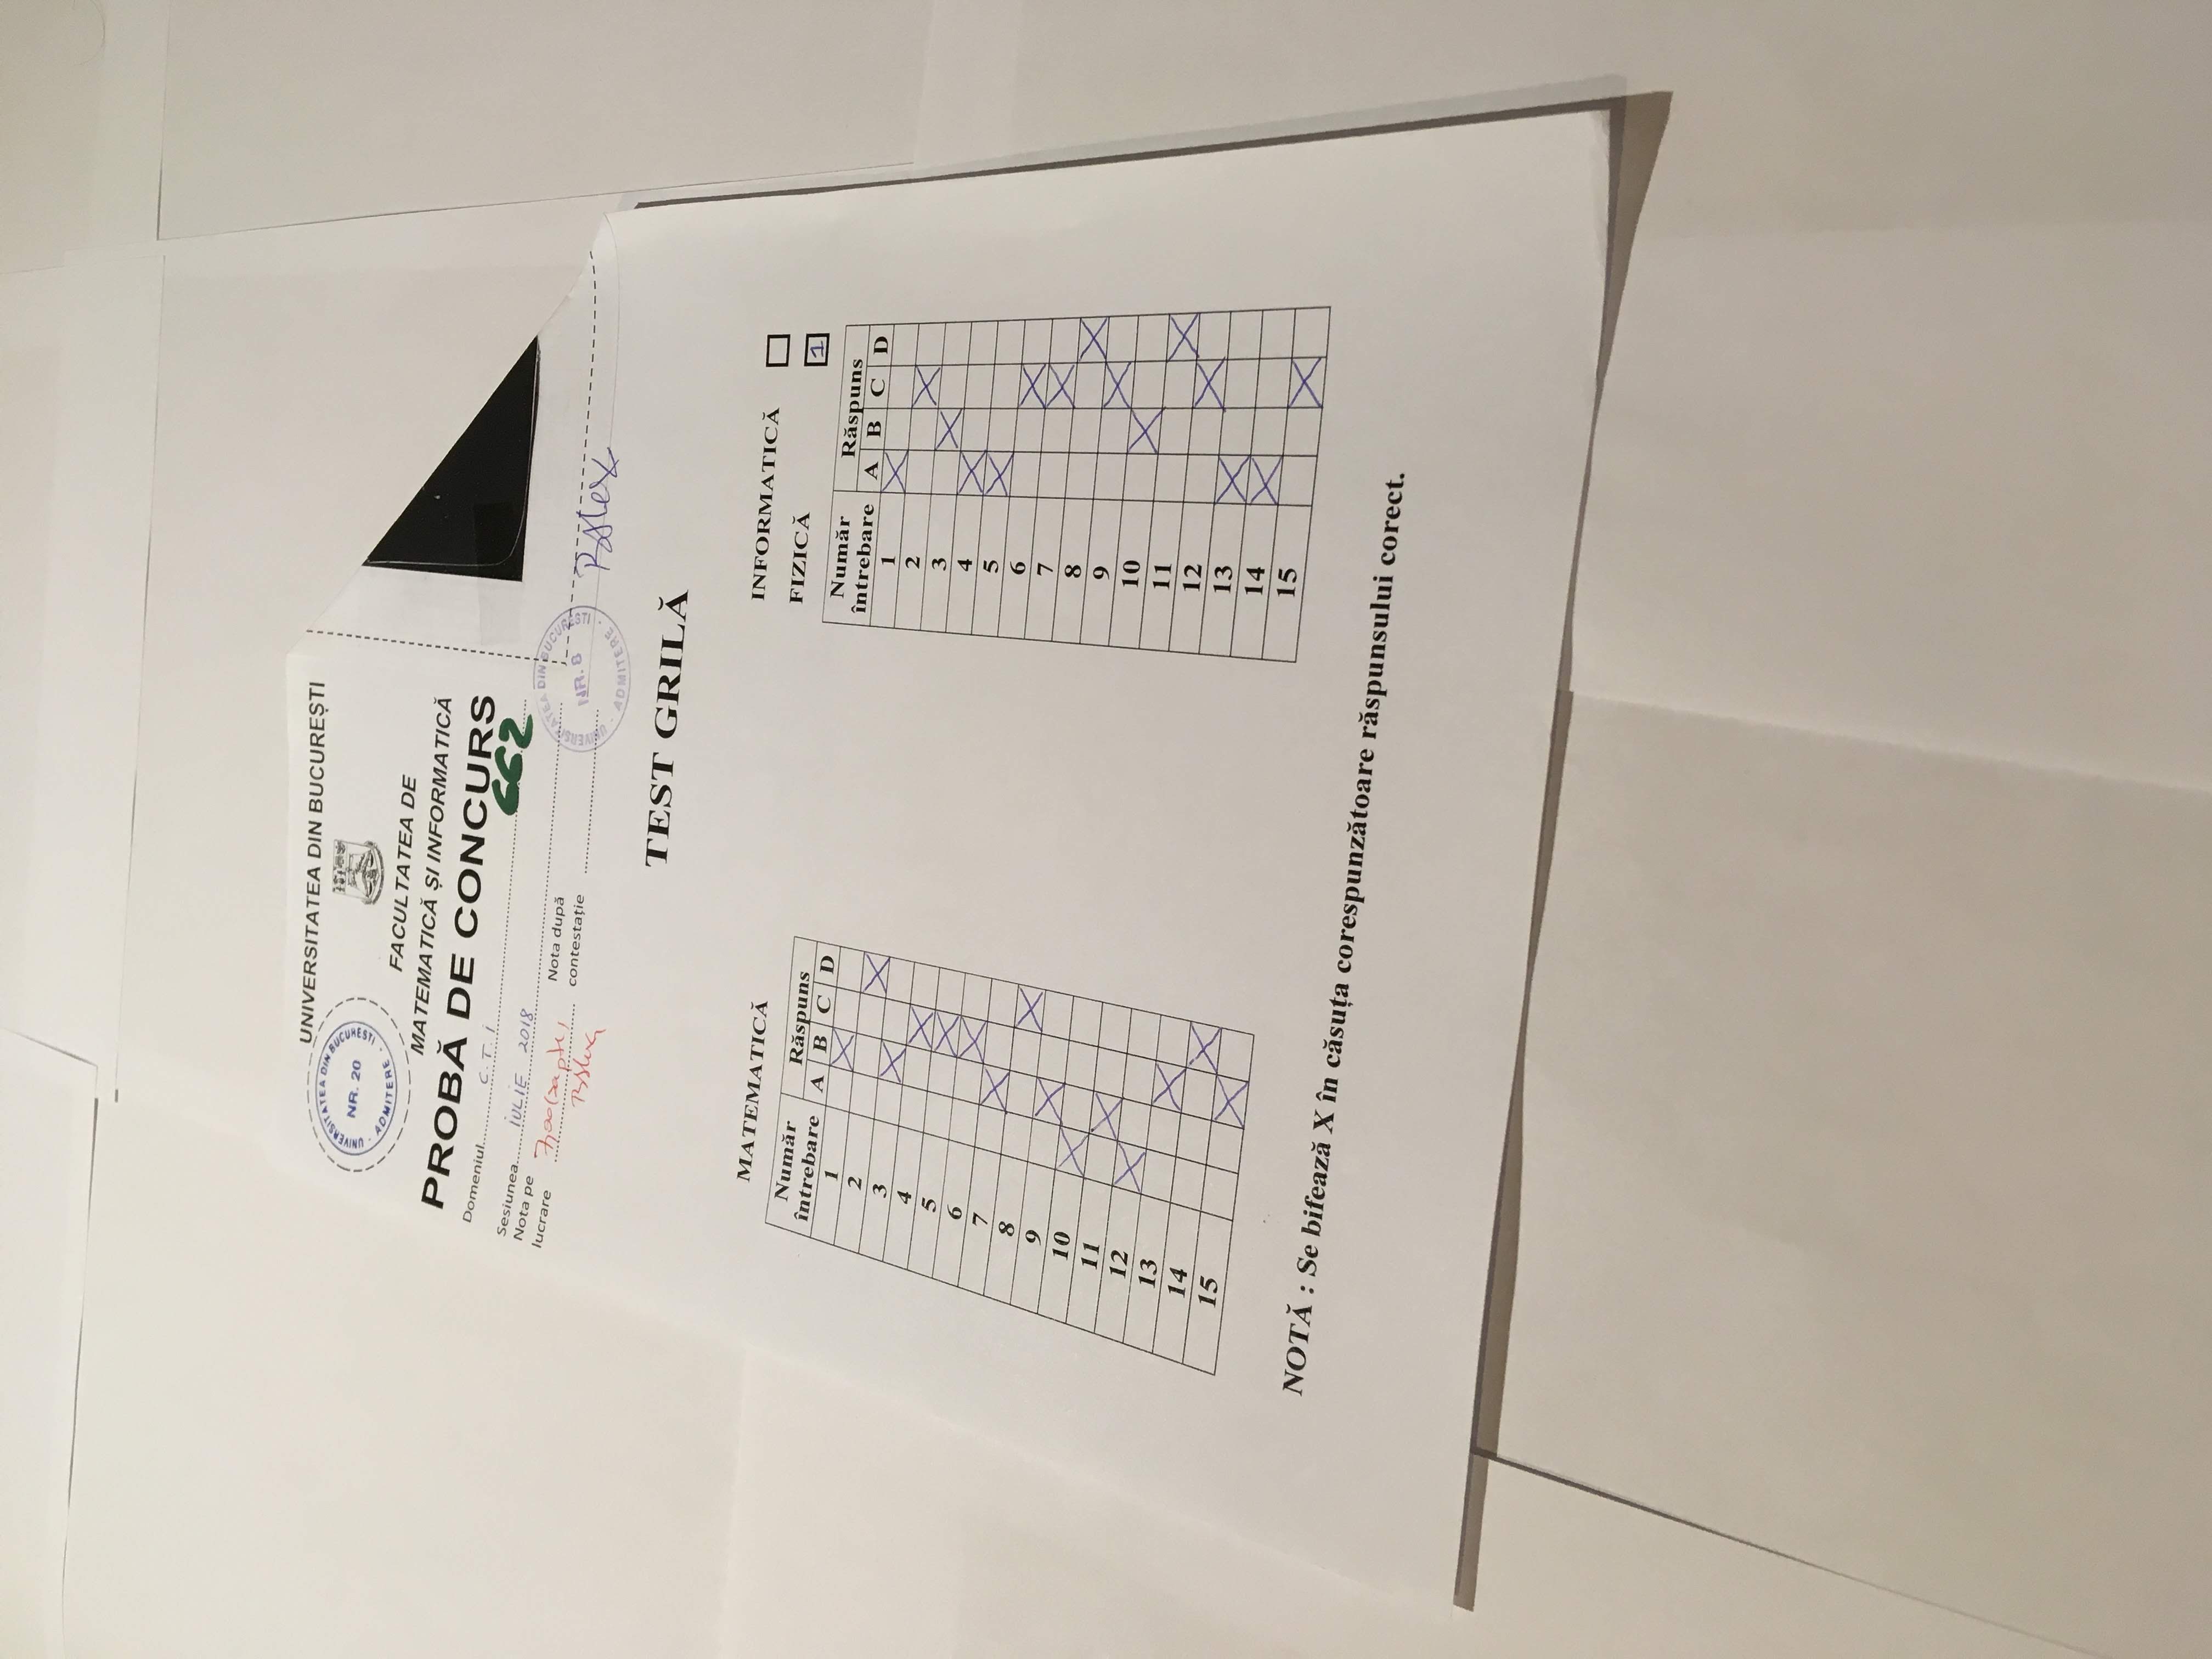 UNIVERSITATEA DIN BUCUREȘTI
UNIVERSITATEA DIN BUCUREȘTI
NR. 20
ADMITERE
FACULTATEA DE
MATEMATICĂ ȘI INFORMATICĂ
PROBĂ DE CONCURS
Domeniul C.T.I
662
Sesiunea IULIE 2018
Nota pe lucrare 7,00 (șapte)
Nota după contestație
UNIVERSITATEA DIN BUCUREȘTI
NR. 8
ADMITERE
TEST GRILĂ
MATEMATICĂ
Număr întrebare Răspuns
A B C D
1 X
2 X
3 X
4 X
5 X
6 X
7 X
8 X
9 X
10 X
11 X
12 X
13 X
14 X
15 X
INFORMATICĂ
FIZICĂ 1
Număr întrebare Răspuns
A B C D
1 X
2 X
3 X
4 X
5 X
6 X
7 X
8 X
9 X
10 X
11 X
12 X
13 X
14 X
15 X
NOTĂ : Se bifează X în căsuța corespunzătoare răspunsului corect.